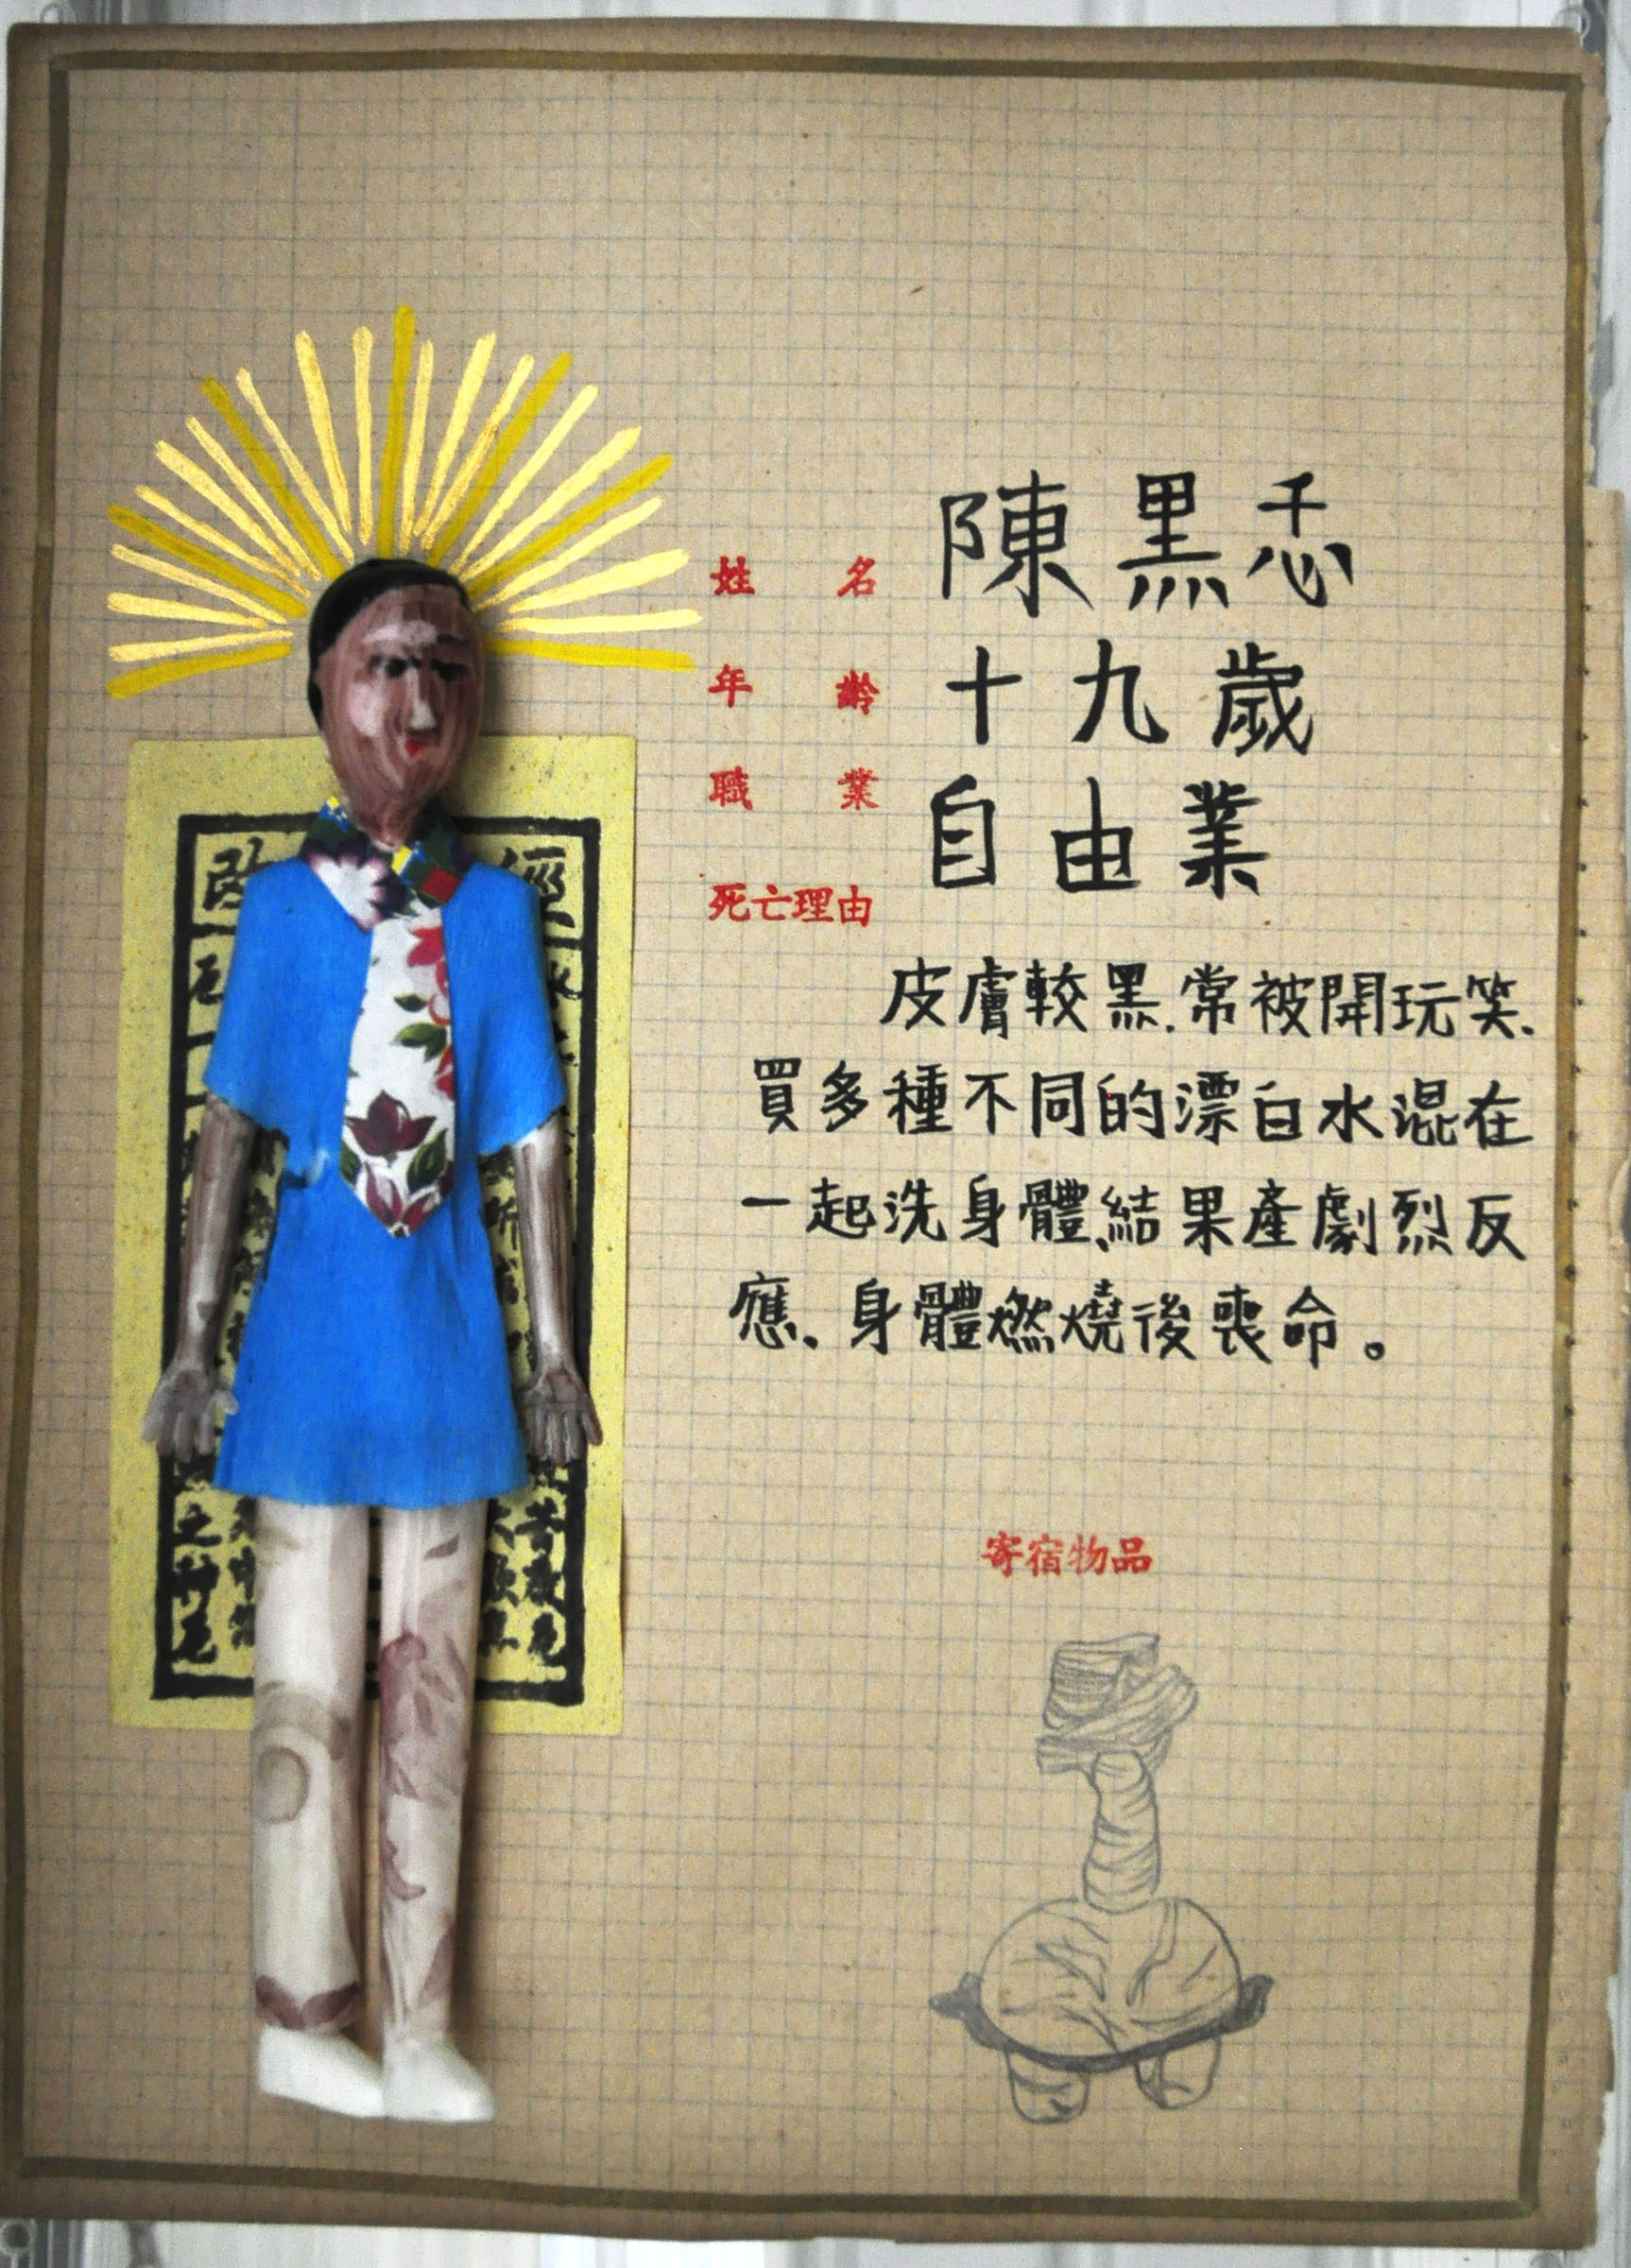 姓名 陳黑忎
年齡 十九歲
職業 自由業
死亡理由
皮膚較黑.常被開玩笑、
買多種不同的漂白水混在
一起洗身體、結果產劇烈反
應、身體燃燒後喪命。
寄宿物品